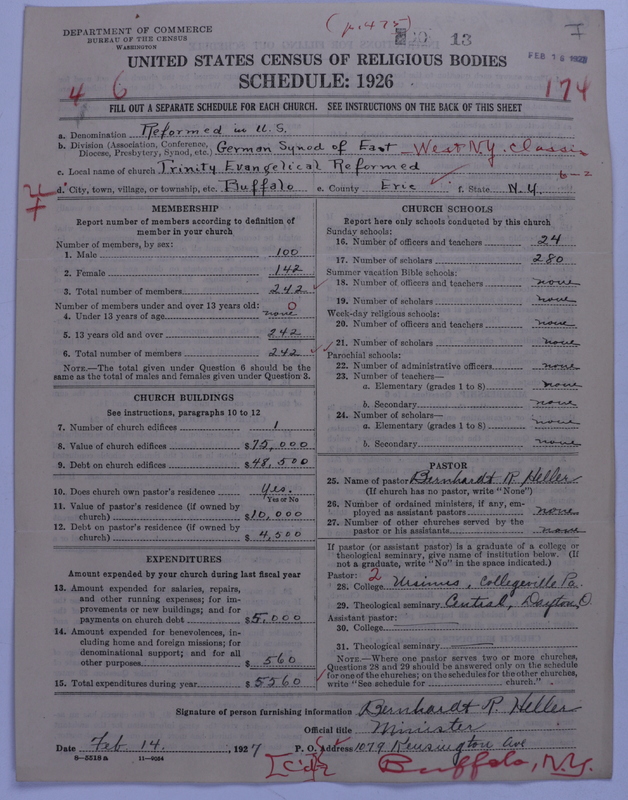 (p. 475)
DEPARTMENT OF COMMERCE
BUREAU OF THE CENSUS
WASHINGTON
13
I
FEB 18
UNITED STATES CENSUS OF RELIGIOUS BODIES
SCHEDULE: 1926
4 6
174
FILL OUT A SEPARATE SCHEDULE FOR EACH CHURCH. SEE INSTRUCTIONS ON THE BACK OF THIS SHEET
a. Denomination Reformed in U.S.
b. Division (Association, Conference, Diocese, Presbytery, Synod, etc.) German Synod of East - West N.Y. Classis
c. Local name of church Trinity Evangelical Reformed
6-2
d. City, town, village, or township, etc. Buffalo e. County Erie f. State N.Y.
MEMBERSHIP
Report number of members according to definition of
member in your church
Number of members, by sex:
1. Male 100
2. Female 142
3. Total number of members 242
Number of members under and over 13 years old: 0
4. Under 13 years of age none
5. 13 years old and over 242
6. Total number of members 242
NOTE.—The total given under Question 6 should be the
same as the total of males and females given under Question 3.
CHURCH BUILDINGS
See instructions, paragraphs 10 to 12
7. Number of church edifices 1
8. Value of church edifices $75,000
9. Debt on church edifices $48,500
10. Does church own pastor's residence Yes.
Yes or No
11. Value of pastor's residence (if owned by
church) $10,000
12. Debt on pastor's residence (if owned by
church) $4,500
EXPENDITURES
Amount expended by your church during last fiscal year
13. Amount expended for salaries, repairs,
and other running expenses; for im-
provements or new buildings; and for
payments on church debt $5,000
14. Amount expended for benevolences, in-
cluding home and foreign missions; for
denominational support; and for all
other purposes $560
15. Total expenditures during year $5560
CHURCH SCHOOLS
Report here only schools conducted by this church
Sunday schools:
16. Number of officers and teachers 24
17. Number of scholars 280
Summer vacation Bible schools:
18. Number of officers and teachers none
19. Number of scholars none
Week-day religious schools:
20. Number of officers and teachers none
21. Number of scholars none
Parochial schools:
22. Number of administrative officers none
23. Number of teachers—
a. Elementary (grades 1 to 8) none
b. Secondary none
24. Number of scholars—
a. Elementary (grades 1 to 8) none
b. Secondary none
PASTOR
25. Name of pastor Bernhardt R. Heller
(If church has no pastor, write "None")
26. Number of ordained ministers, if any, em-
ployed as assistant pastors none
27. Number of other churches served by the
pastor or his assistants none
If pastor (or assistant pastor) is a graduate of a college or
theological seminary, give name of institution below. (If
not a graduate, write "No" in the space indicated.)
Pastor: 2
28. College Ursinus, Collegeville Pa.
29. Theological seminary Central, Dayton, O.
Assistant pastor:
30. College
31. Theological seminary
NOTE.—Where one pastor serves two or more churches,
Questions 28 and 29 should be answered only on the schedule
for one of the churches; on the schedules for the other churches,
write "See schedule for church."
Signature of person furnishing information Bernhardt R. Heller
Official title Minister
Date Feb 14, 1927 P. O. Address 1079 Kensington Ave
8-5518a 11-9054
Buffalo, N.Y.